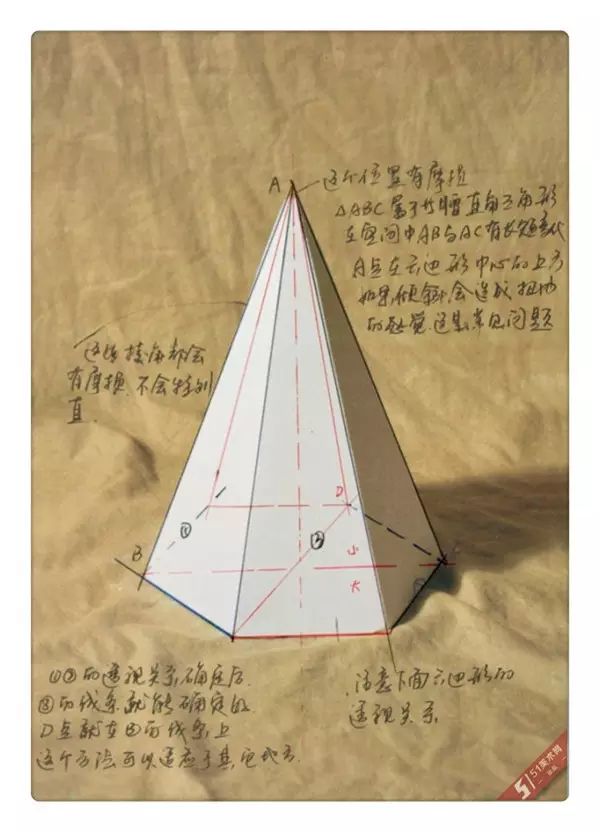 A
这个位置有摩损
△ABC属于等腰直角三角形
在空间中AB与AC有长短变化
A点在六边形中心的上方
如果倾斜,会造成扭曲
的感觉.这是常见问题
这些棱角都会
有摩损.不会特别
直.
D
①
③
B
小
大
C
②
①②的透视关系确定后.
③的线条就能确定的.
D点就在③的线条上
这个方法可以适应于其它地方.
注意下面六边形的
透视关系
51美术网